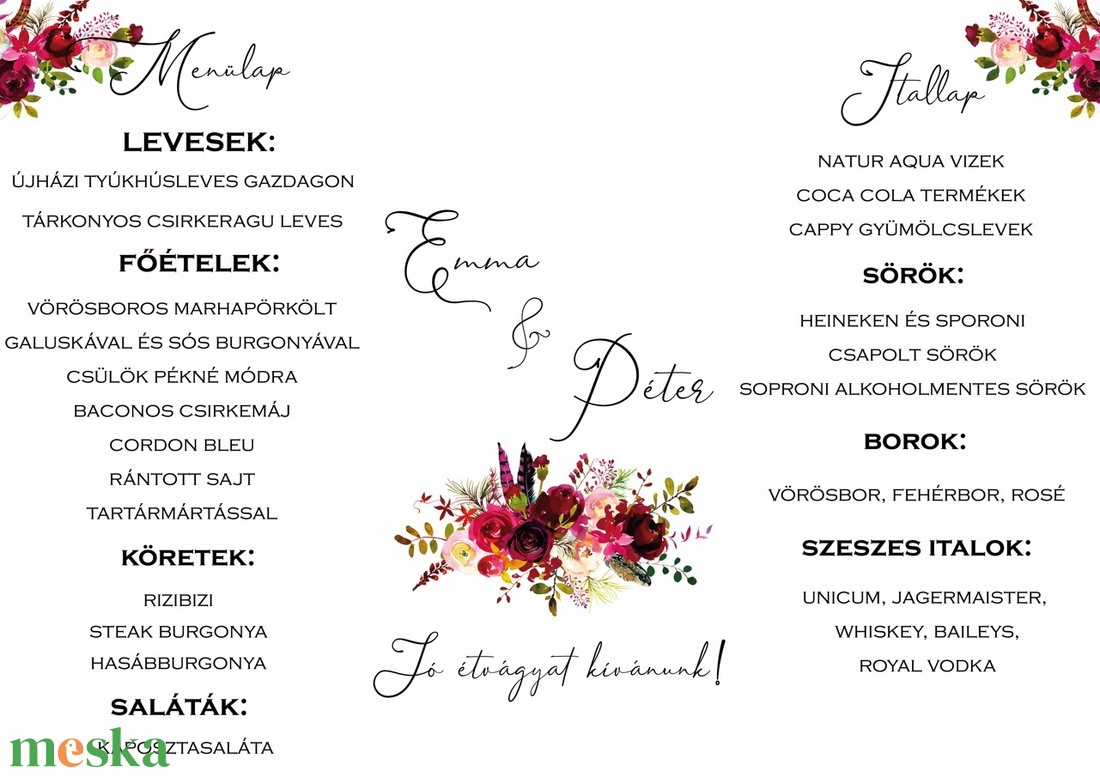 Menülap
LEVESEK:
ÚJHÁZI TYÚKHÚSLEVES GAZDAGON
TÁRKONYOS CSIRKERAGU LEVES
FŐÉTELEK:
VÖRÖSBOROS MARHAPÖRKÖLT
GALUSKÁVAL ÉS SÓS BURGONYÁVAL
CSÜLÖK PÉKNÉ MÓDRA
BACONOS CSIRKEMÁJ
CORDON BLEU
RÁNTOTT SAJT
TARTÁRMÁRTÁSSAL
KÖRETEK:
RIZIBIZI
STEAK BURGONYA
HASÁBBURGONYA
SALÁTÁK:
KÁPOSZTASALÁTA
meska
Emma
&
Péter
Jó étvágyat kívánunk!
Itallap
NATUR AQUA VIZEK
COCA COLA TERMÉKEK
CAPPY GYÜMÖLCSLEVEK
SÖRÖK:
HEINEKEN ÉS SPORONI
CSAPOLT SÖRÖK
SOPRONI ALKOHOLMENTES SÖRÖK
BOROK:
VÖRÖSBOR, FEHÉRBOR, ROSÉ
SZESZES ITALOK:
UNICUM, JAGERMAISTER,
WHISKEY, BAILEYS,
ROYAL VODKA